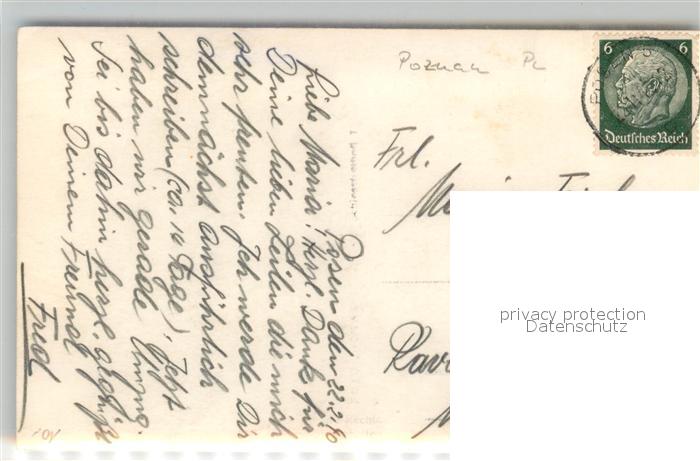 Posen den 22.2.40
Liebe Maria! Herzl. Dank für
Deine lieben Zeilen die mich
sehr freuten. Ich werde Dir
demnächst ausführlich
schreiben (ca. 14 Tage). Jetzt
haben wir gerade Umzug.
Sei bis dahin herzl. gegrüßt
von Deinem Freund
Fred
Poznan PL
6 6
Deutsches Reich
Frl.
privacy protection
Datenschutz